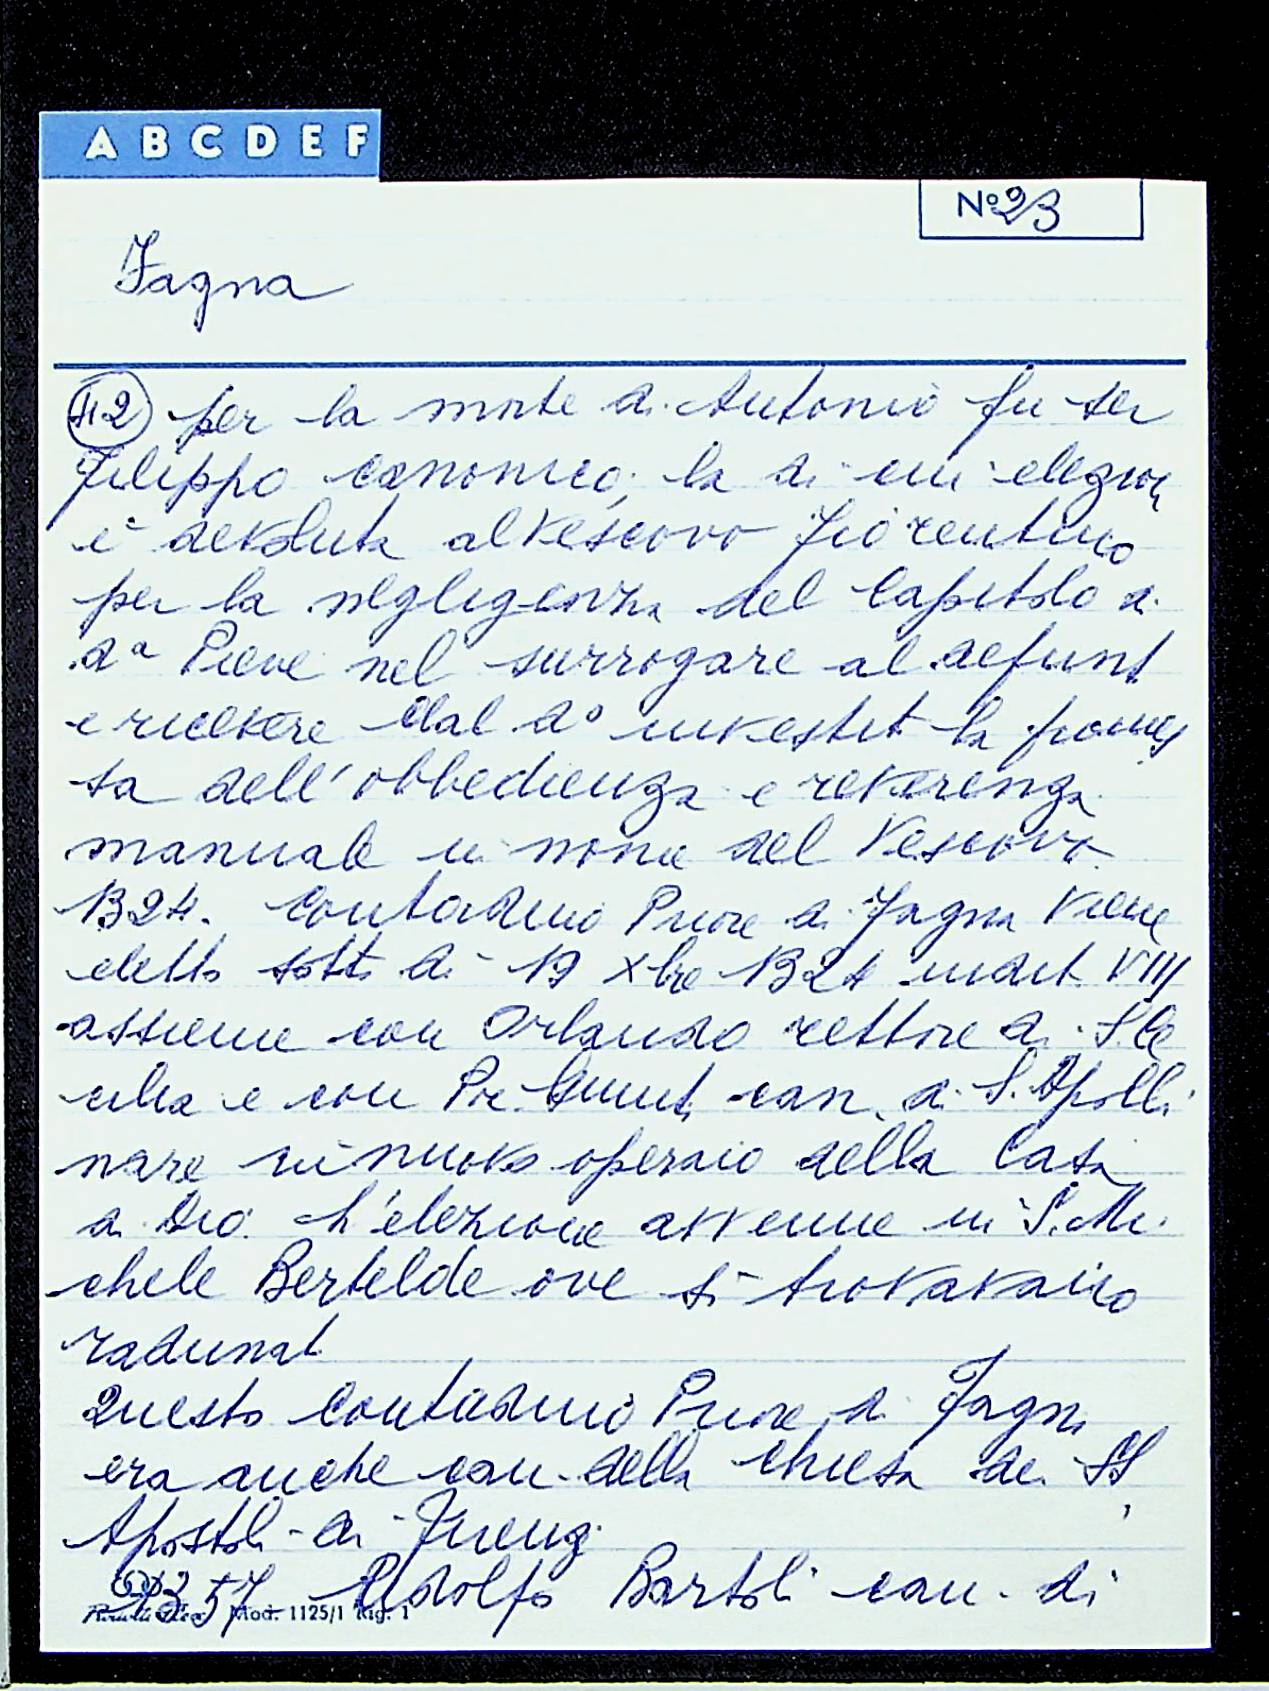 A B C D E F
Nº 23
Fagna
42 per la morte di Antonio fu ser
Filippo canonico, la di cui elezion
è devoluta al Vescovo Fiorentino
per la negligenza del Capitolo di
dª Pieve nel surrogare al defunt
e ricevere dal dº investit la promes
sa dell'obbedienza e reverenza
manuale in nome del Vescovo
1324. Contadino Priore di Fagna viene
eletto sotto di 19 Xbre 1324 indit. VIII
assieme con Orlando rettore di S. Ce
cilia e con can. di S. Apolli
nare in nuovo operaio della Casa
di Dio. L'elezione avvenne in S. Mi
chele Bertelde ove si trovavano
radunat
Questo Contadino Priore di Fagna
era anche can. della Chiesa dei SS
Apostoli di Firenz
1357 Adolfo Bartoli can. di
Mod. 1125/1 Rig. 1